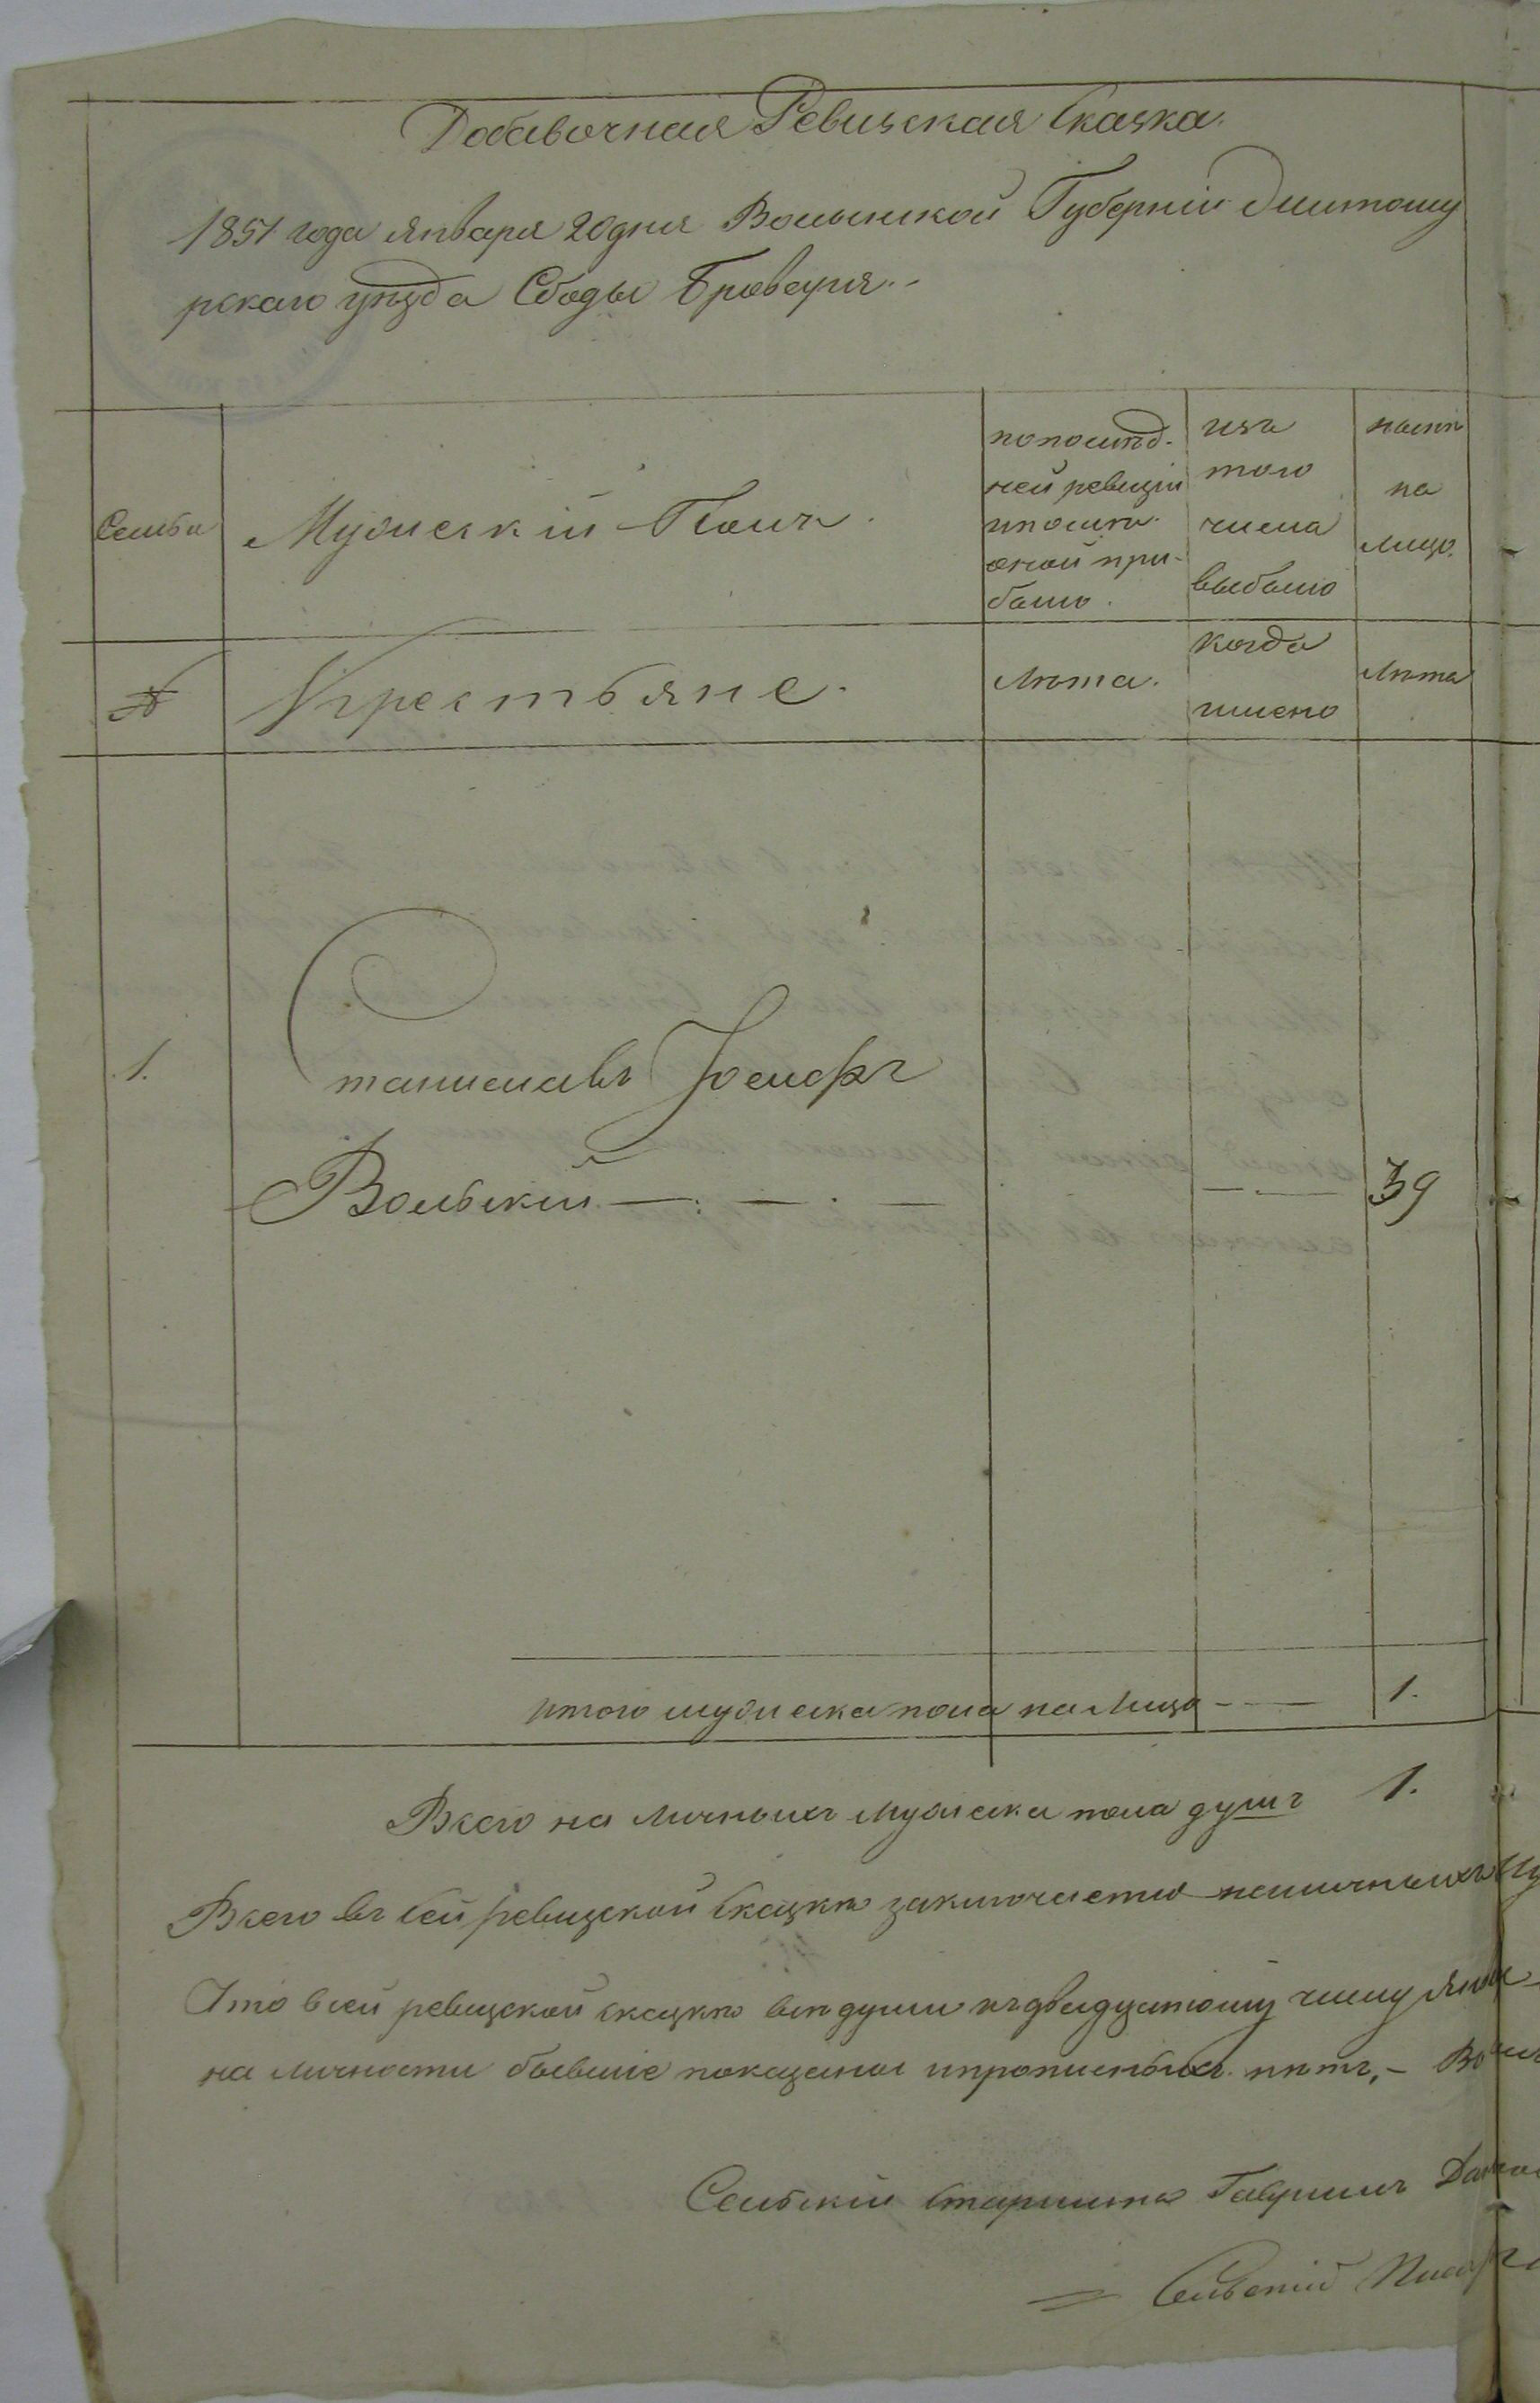 Добавочная Ревизская Сказка.
1851 года января 20 дня Волынской Губерніи Житому
рскаго уѣзда Сбоды Броварня
Семьи
Мужескій Полъ.
по послѣд.
ней ревизіи
и послѣ
оной при-
было.
изъ
того
числа
выбыло
нынѣ
на
лицо.
№
Крестьяне.
лѣта.
когда
имено
лѣта
1.
Станиславъ Іосифъ
Вольскій
39
Итого мужеска пола на лицо 1.
Всего на личныхъ мужеска пола душъ 1.
Всего въ сей ревизской сказкѣ заключается наличныхъ
Что в сей ревизской сказкѣ всѣ души къ двадцатому числу
на личности бывшіе показаны и прописныхъ нѣтъ,-
Сельскій старшина Гаврилъ
Сельскій Писарь